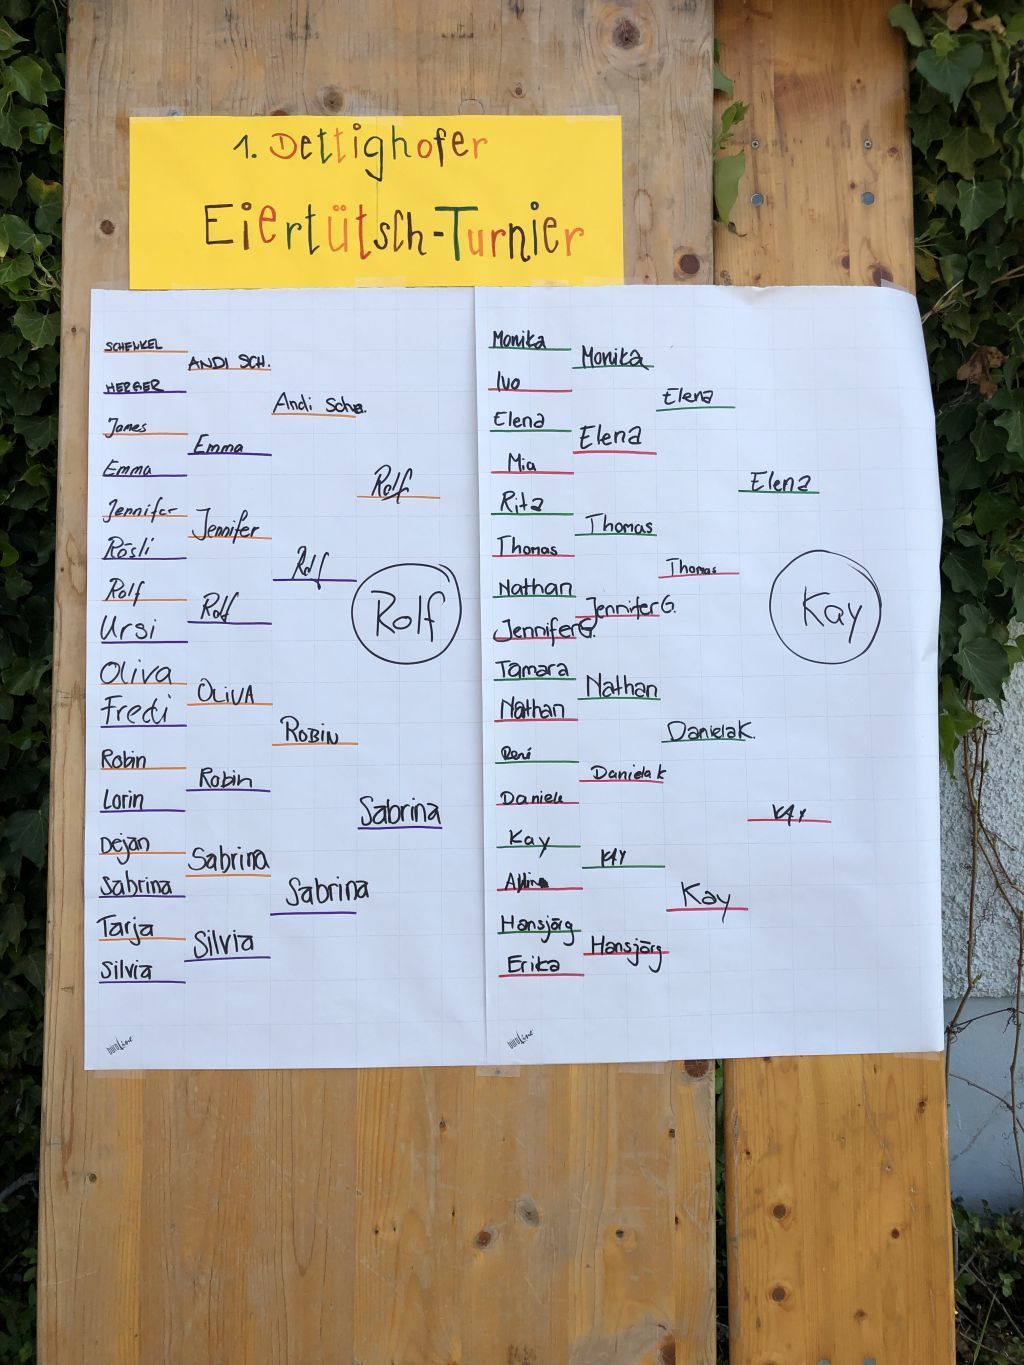 1. Dettighofer
Eiertütsch-Turnier
SCHENKEL
ANDI SCH.
HERGER
Andi Sche.
James
Emma
Emma
Rolf
Jennifer
Jennifer
Rösli
Rolf
Rolf
Rolf
Ursi
Rolf
Oliva
OLIVA
Fredi
ROBIN
Robin
Robin
Lorin
Sabrina
Dejan
Sabrina
Sabrina
Sabrina
Tarja
Silvia
Silvia
Monika
Monika
Ivo
Elena
Elena
Elena
Mia
Elena
Rita
Thomas
Thomas
Thomas
Nathan
Jennifer G.
Jennifer G.
Kay
Tamara
Nathan
Nathan
Daniela K.
René
Daniela K
Daniela
KAY
Kay
KAY
Kay
Hansjörg
Hansjörg
Erika